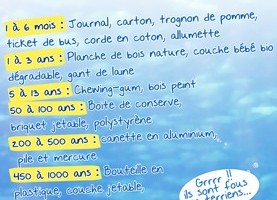 1 à 6 mois : Journal, carton, trognon de pomme,
ticket de bus, corde en coton, allumette
1 à 3 ans : Planche de bois nature, couche bébé bio
dégradable, gant de laine
5 à 13 ans : Chewing-gum, bois peint
50 à 100 ans : Boite de conserve,
briquet jetable, polystyrène
200 à 500 ans : canette en aluminium,
pile et mercure
450 à 1000 ans : Bouteille en
plastique, couche jetable,
Grrrr !!
ils sont fous
terriens...